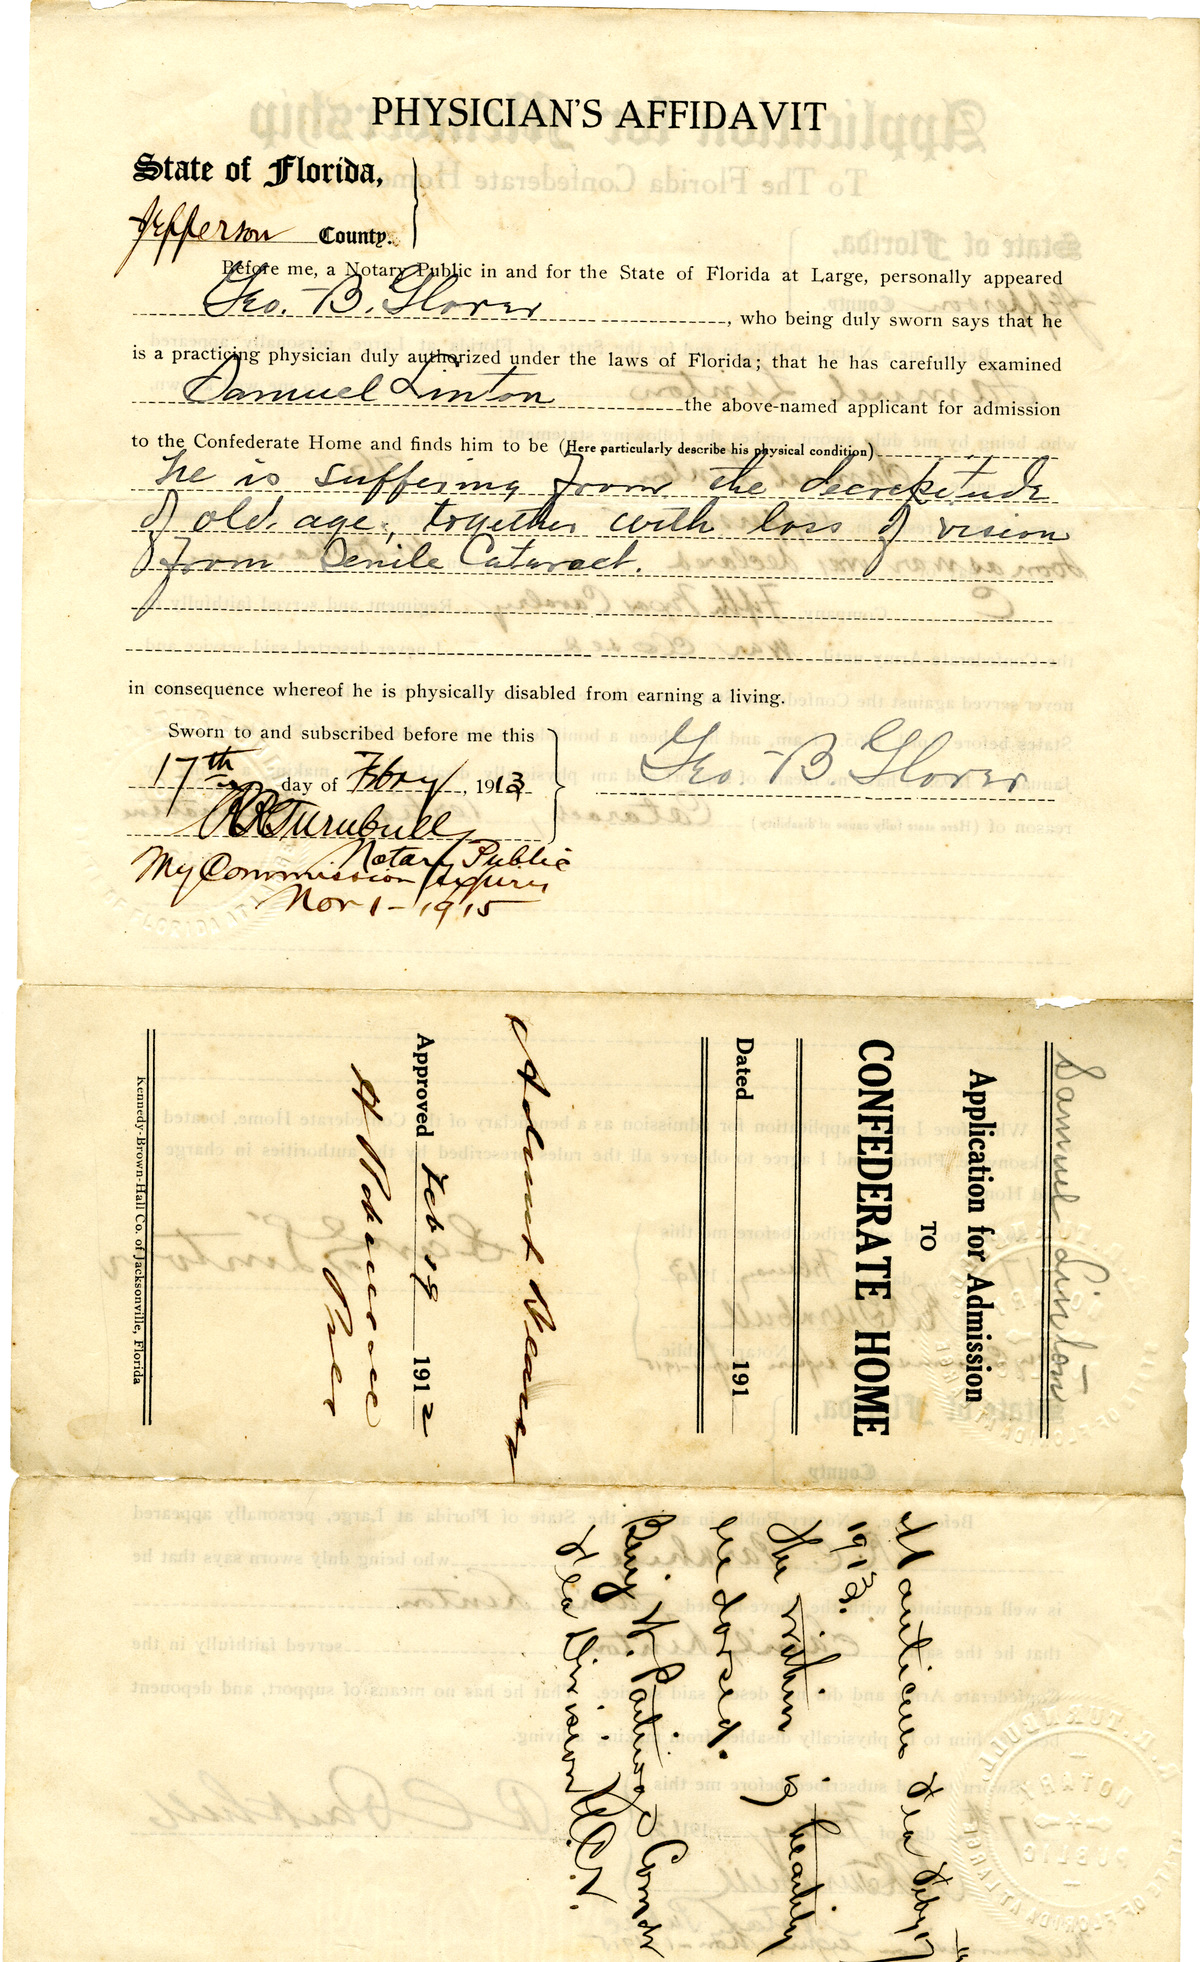 PHYSICIAN'S AFFIDAVIT
State of Florida,
Jefferson County.
Before me, a Notary Public in and for the State of Florida at Large, personally appeared
Geo. B. Glover, who being duly sworn says that he
is a practicing physician duly authorized under the laws of Florida; that he has carefully examined
Samuel Linton the above-named applicant for admission
to the Confederate Home and finds him to be (Here particularly describe his physical condition)
he is suffering from the decrepitude
of old. age, together with loss of vision
from Senile Cataract.
in consequence whereof he is physically disabled from earning a living.
Sworn to and subscribed before me this
17th day of Feby, 1913
Geo B Glover
R R Turnbull
Notary Public
My Commission Expires
Nov 1 - 1915
Samuel Linton
Application for Admission
TO
CONFEDERATE HOME
Dated 191
Admit
Approved Feb 19 1912
Pres
Kennedy-Brown-Hall Co. of Jacksonville, Florida
Monticello Fla Feby 17
1913.
The within is heartily
endorsed.
Benj. W. Partridge Comdr
Fla Division U.C.V.